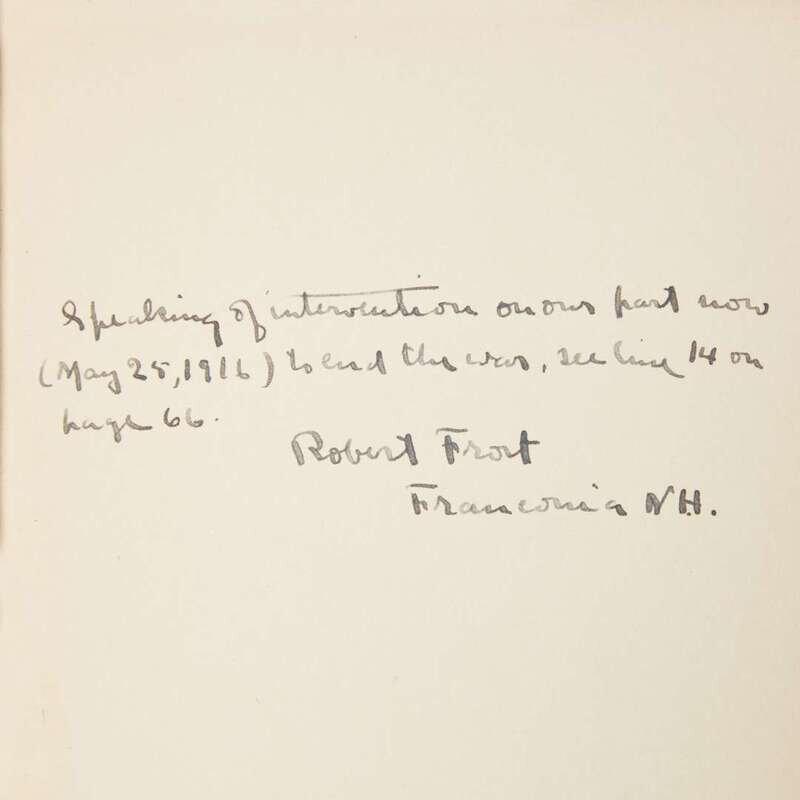 Speaking of intervention on our part now
(May 25, 1916) to end the war, see line 14 on
page 66.
Robert Frost
Franconia N.H.